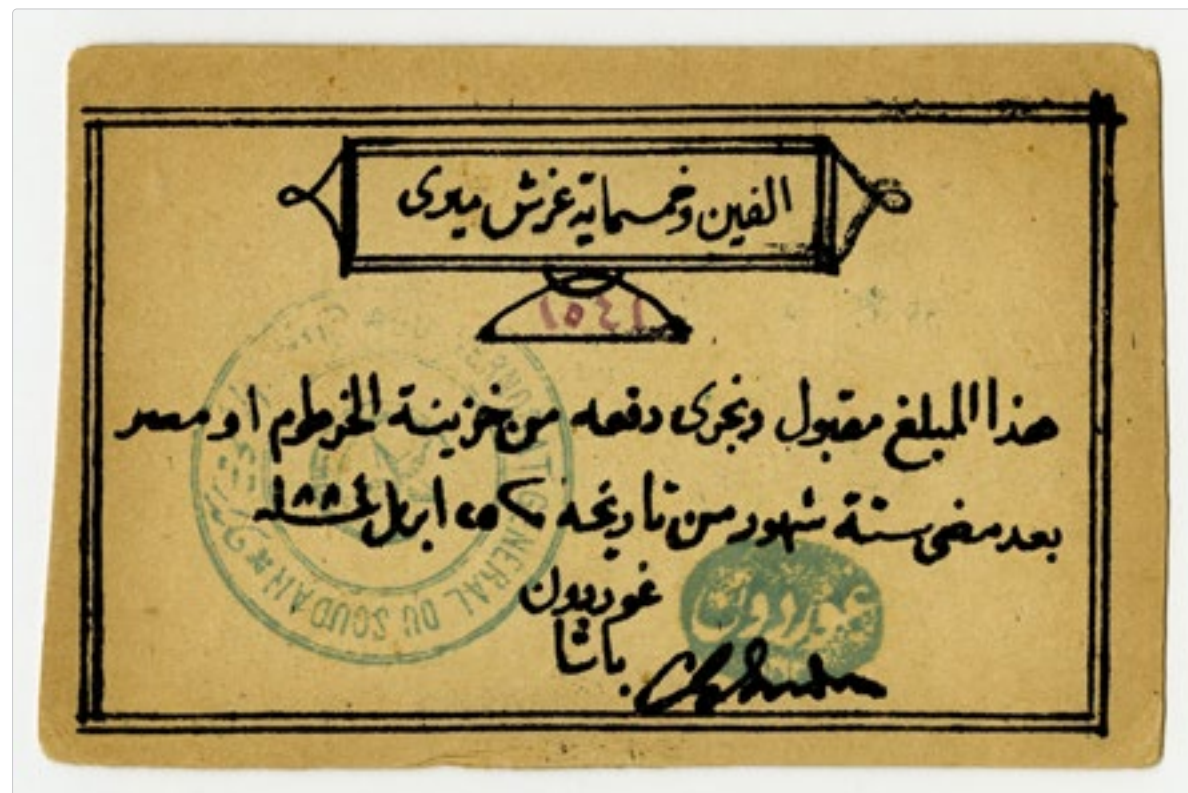 الفين وخمسماية غرش ميرى
١٥٤١
هذا المبلغ مقبول ونجرى دفعه من خزينة الخرطوم او مصر
بعد مضى ستة شهور من تاريخه ٢٥ ابريل سنة ١٨٨٤
غوردون
باشا
GENERAL DU SOUDAN